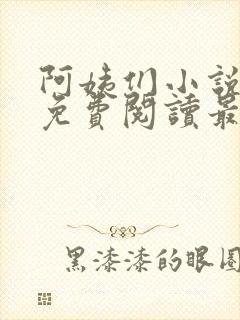 阿姨们小説
免費閱讀最
黑漆漆的眼圈